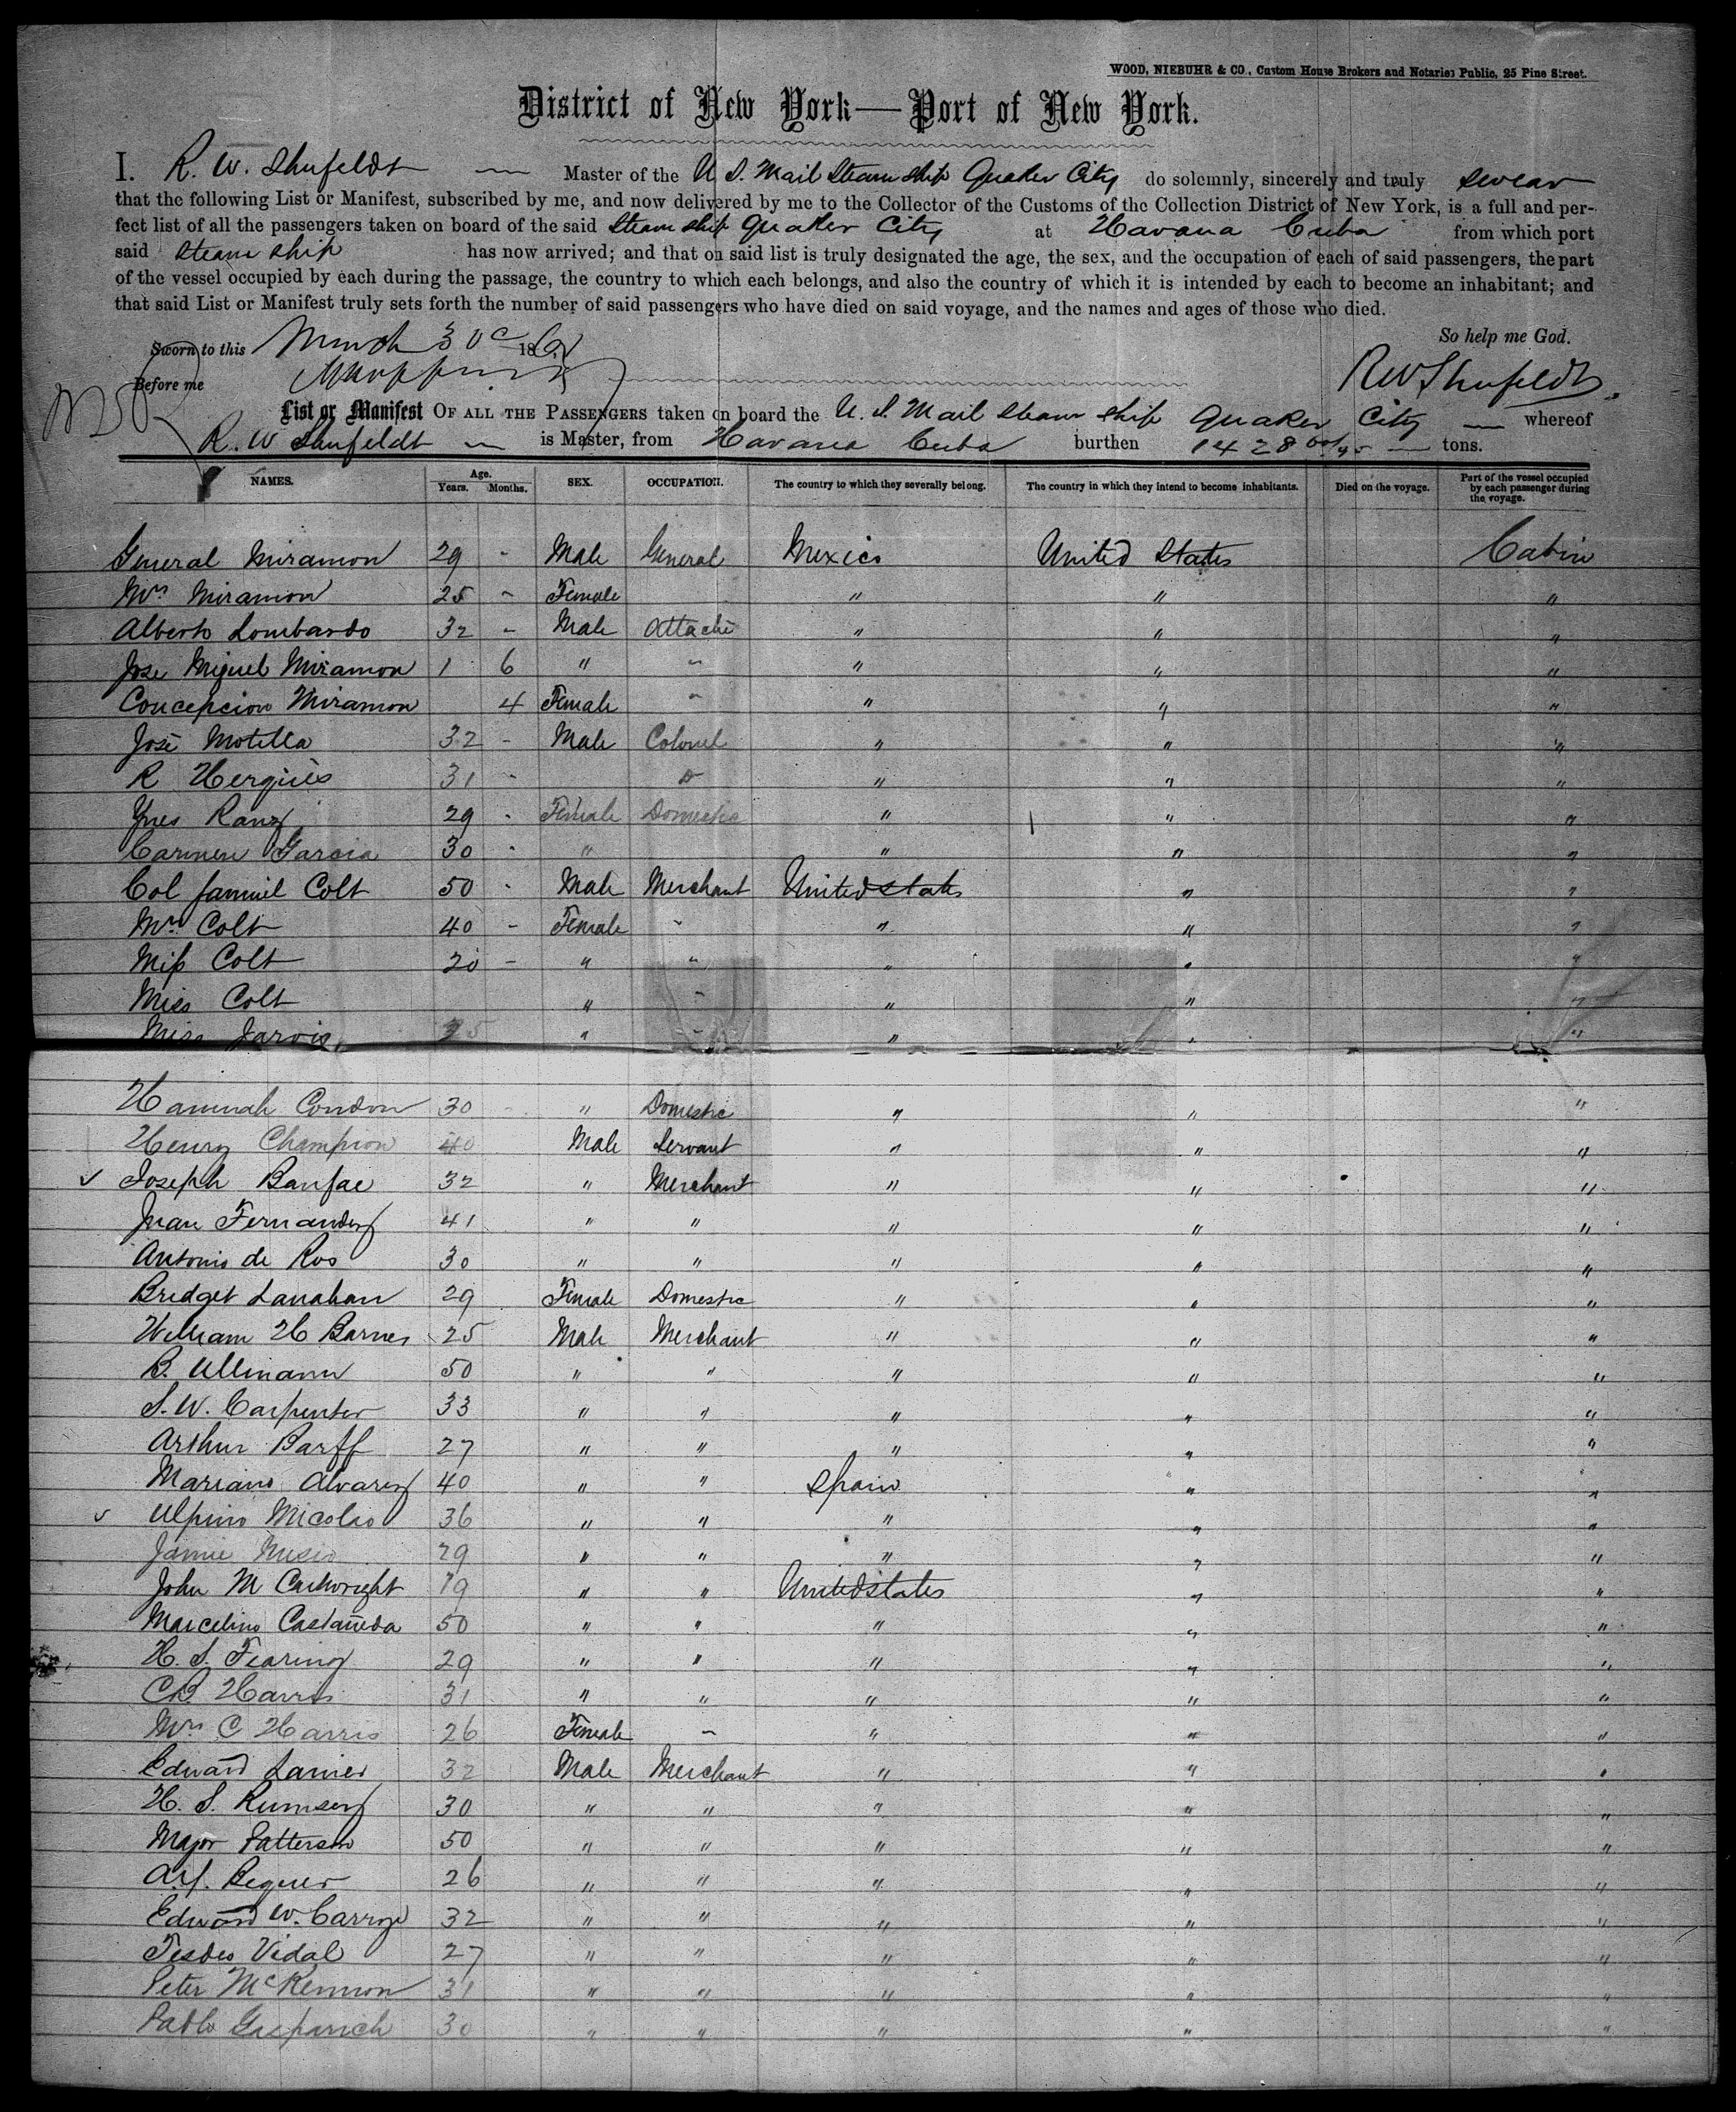 WOOD, NIEBUHR & CO., Custom House Brokers and Notaries Public, 25 Pine Street.
District of New York—Port of New York.
I. R. W. Shufeldt — Master of the U. S. Mail Steam ship Quaker City do solemnly, sincerely and truly swear
that the following List or Manifest, subscribed by me, and now delivered by me to the Collector of the Customs of the Collection District of New York, is a full and per-
fect list of all the passengers taken on board of the said Steam ship Quaker City at Havana Cuba from which port
said Steam ship has now arrived; and that on said list is truly designated the age, the sex, and the occupation of each of said passengers, the part
of the vessel occupied by each during the passage, the country to which each belongs, and also the country of which it is intended by each to become an inhabitant; and
that said List or Manifest truly sets forth the number of said passengers who have died on said voyage, and the names and ages of those who died.
So help me God.
Sworn to this March 30 186
Before me
R W Shufeldt
List or Manifest OF ALL THE PASSENGERS taken on board the U. S. Mail Steam ship Quaker City — whereof
R. W Shufeldt — is Master, from Havana Cuba burthen 1428 tons.
NAMES. Age. Years. Months. SEX. OCCUPATION. The country to which they severally belong. The country in which they intend to become inhabitants. Died on the voyage. Part of the vessel occupied by each passenger during the voyage.
General Miramon 29 - Male General Mexico United States Cabin
Mrs Miramon 25 - Female " " "
Alberto Lombardo 32 - Male Attaché " " "
Jose Miguel Miramon 1 6 " - " " "
Concepcion Miramon 4 Female - " " "
José Motilla 32 - Male Colonel " " "
R Hergués 31 - Do " " "
Ynes Ranz 29 - Female Domestic " " "
Carmen Garcia 30 - " " " "
Col Samuel Colt 50 - Male Merchant United States " "
Mrs Colt 40 - Female - " " "
Miss Colt 20 - " " " " "
Miss Colt " - " " "
Miss Jarvis 25 " - " " "
Hannah Condon 30 - " Domestic " " "
Henry Champion 40 Male Servant " " "
Joseph Banfae 32 " Merchant " " "
Juan Fernandez 41 " " " " "
Antonio de Ros 30 " " " " "
Bridget Lanahan 29 Female Domestic " " "
William H Barnes 25 Male Merchant " " "
B. Ullmann 50 " " " " "
S. W. Carpenter 33 " " " " "
Arthur Barff 27 " " " " "
Mariano Alvarez 40 " " Spain " "
Ulpino Nicolao 36 " " " " "
Jamie 29 " " " " "
John M Cartwright 19 " " United States " "
Marcelino Castañeda 50 " " " " "
H. S. Fearing 29 " " " " "
C B Harris 31 " " " " "
Mrs C Harris 26 Female - " " "
Edward Lanier 32 Male Merchant " " "
H. S. Rumsey 30 " " " " "
Major Patterson 50 " " " " "
A. Y. Requer 26 " " " " "
Edward W. 32 " " " " "
Vidal 27 " " " " "
Peter McKennon 31 " " " " "
Pablo Gasparich 30 " " " " "